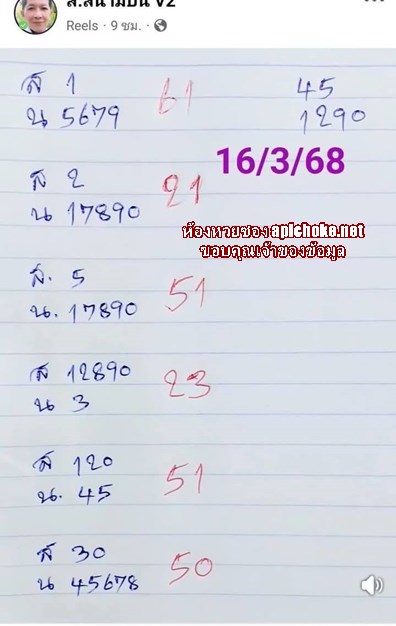 ส.สนามบิน V2
Reels · 9 ชม. ·
ส 1
น 5679
61
45
1290
16/3/68
ส 2
น 17890
21
ห้องหวยซองapichoke.net
ขอบคุณเจ้าของข้อมูล
ส. 5
น. 17890
51
ส 12890
น 3
23
ส 120
น. 45
51
ส 30
น 45678
50